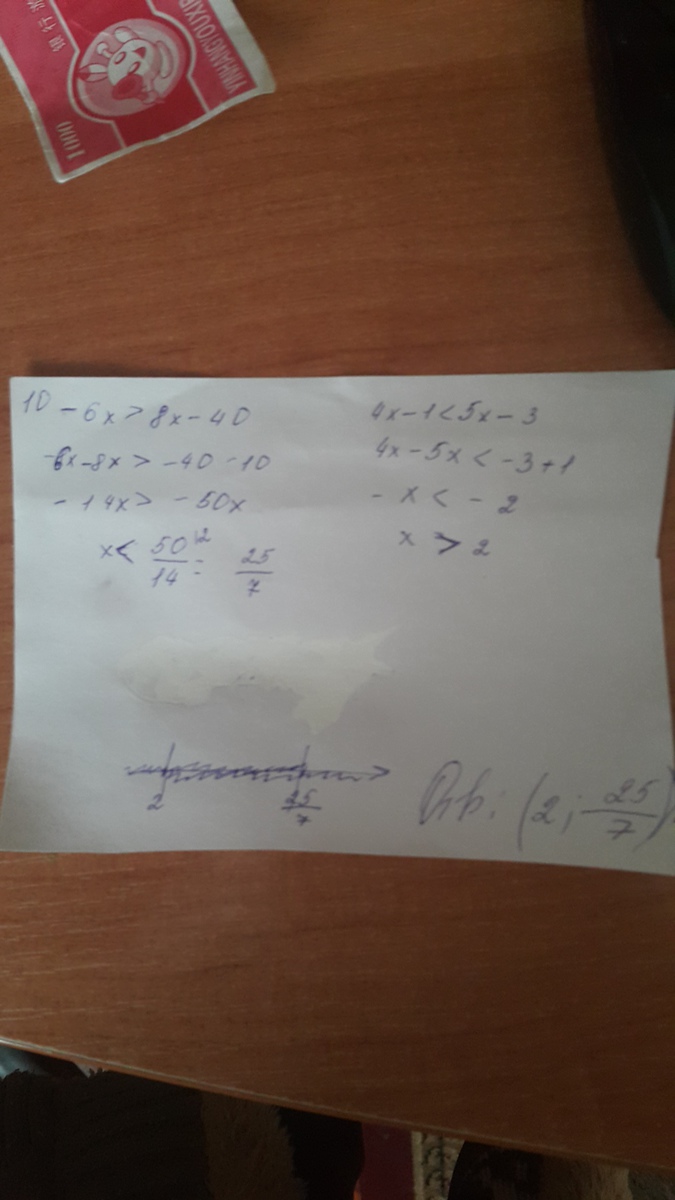 YINHANGTOUXIP
1000
10 - 6x > 8x - 40
-6x - 8x > -40 - 10
- 14x > - 50x
x < 50/14 |2 = 25/7
4x - 1 < 5x - 3
4x - 5x < -3 + 1
- x < - 2
x > 2
2
25/7
Отв: (2; 25/7).